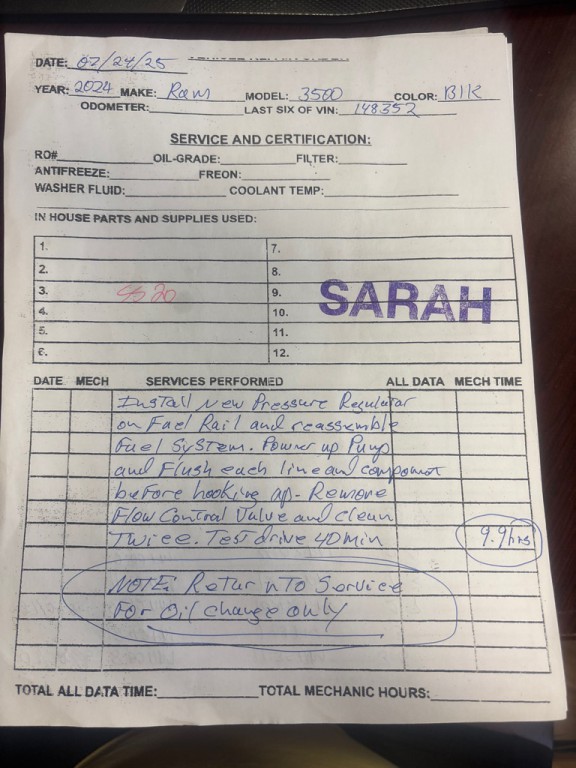 DATE: 02/24/25
YEAR: 2024 MAKE: Ram MODEL: 3500 COLOR: BlK
ODOMETER: LAST SIX OF VIN: 148352
SERVICE AND CERTIFICATION:
RO# OIL-GRADE: FILTER:
ANTIFREEZE: FREON:
WASHER FLUID: COOLANT TEMP:
IN HOUSE PARTS AND SUPPLIES USED:
1. 7.
2. 8.
3. 9. SARAH
4. 10.
5. 11.
6. 12.
DATE MECH SERVICES PERFORMED ALL DATA MECH TIME
Install New Pressure Regulator
on Fuel Rail and reassemble
Fuel System. Power up Pump
and Flush each line and componat
before hooking up - Remove
Flow Control Valve and clean
Twice. Test drive 40 min 9.9 hrs
NOTE: Return To Service
For Oil change only
TOTAL ALL DATA TIME: TOTAL MECHANIC HOURS: